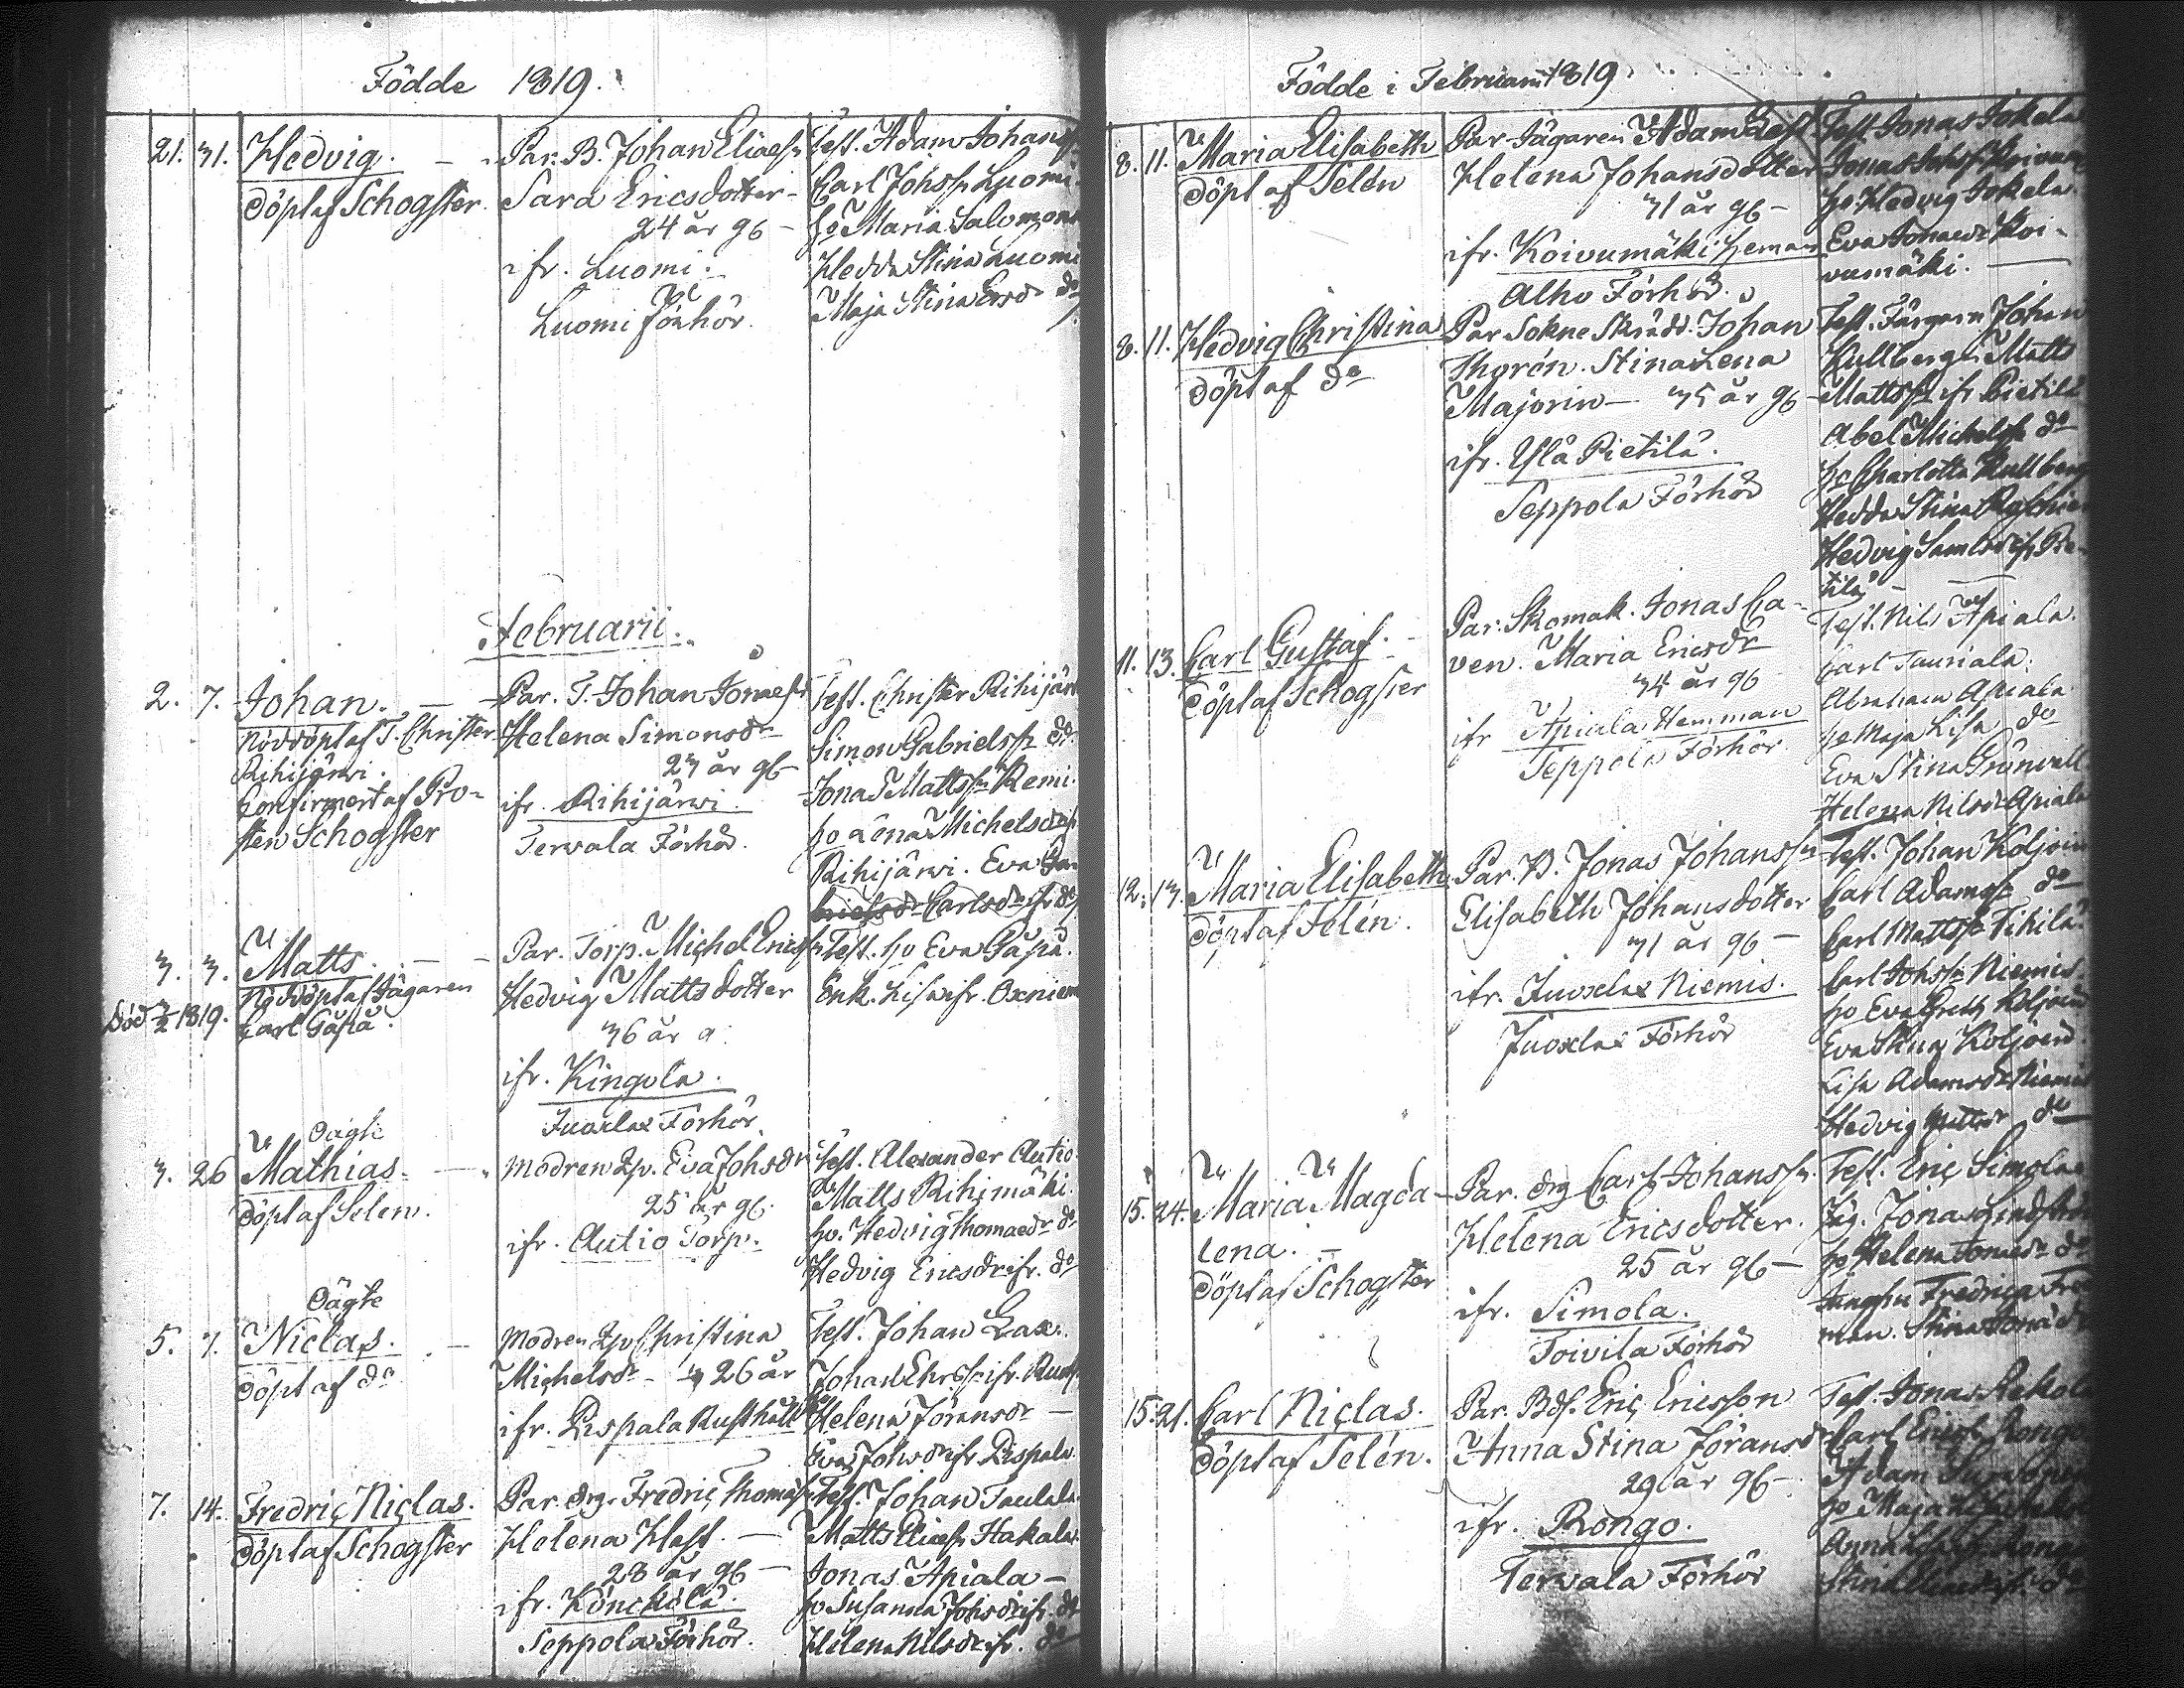 Födde 1819.
21. 31. Hedvig.
döpt af Schogster.
Par. B. Johan Eliaess.
Sara Ericsdotter
24 år g6
ifr. Luomi.
Luomi förhör.
Test. Adam Johans
Carl Johss. Luomi.
ho Maria Salomons
Hedda Stina Luomi
Maja Stina Ersdr do
Februarii.
2. 7. Johan.
Nöddöpt af T. Christer
Rihijärwi.
Confirmert af Pro-
sten Schogster
Par. T. Johan Jonaess
Helena Simonsdr
23 år g6
ifr. Rihijärwi.
Tervala Förhör.
Test. Christer Rihijärw
Simon Gabrielss. do
Jonas Mattss. Kemi.
ho Lena Michelsdr
Rihijärwi. Eva
Carlsdr ifr do
3. 3. Matts.
Nöddöpt af Jägaren
Carl Gåspå.
död 3/2 1819.
Par. Torp. Michel Ericss.
Hedvig Mattsdotter
36 år g.
ifr. Kingola.
Juvxlax Förhör.
Test. ho Eva Gåspå.
Enk. Lisa ifr. Oxniem
Oägte
3. 26 Mathias.
döpt af Selen.
Modren Zp. Eva Johsdr
25 år g6.
ifr. Autio Torp.
Test. Alexander Autio
Matts Rihimäki.
ho. Hedvig Thomaedr do
Hedvig Ericsdr ifr. do
Oägte
5. 7. Niclas.
döpt af do
Modren Zp Christina
Michelsdr 26 år
ifr. Pispala Rusthåll
Test. Johan Lax.
Johan Ehrss. ifr.
Helena Jöransdr
Eva Johsdr ifr Pispala
7. 14. Fredric Niclas.
döpt af Schogster
Par. drg. Fredric Thomass.
Helena Hast.
28 år g6
ifr. Könckölä.
Seppola Förhör.
Test. Johan Taulala
Matts Eliaess. Hakala
Jonas Apiala
ho Susanna Johsdr ifr. do
Helena Nilsdr ifr. do
Födde i Februarii 1819
8. 11. Maria Elisabeth
döpt af Selén
Par Jägaren Adam Lest
Helena Johansdotter
31 år g6
ifr. Koivumäki heman
Alho Förhör.
Test. Jonas Jokela
ho Hedvig Jokela
Eva Jonaedr Koi-
vumäki.
8. 11. Hedvig Christina
döpt af do
Par Sokne Skrädd. Johan
Thorén. Stina Lena
Majorin 35 år g6
ifr. Ylä Pietilä.
Seppola Förhör
Test. Färgarn Johan
Kullberg. Matts
Mattss. ifr Pietilä
Abel Michelss. do
ho Charlotta Kullberg
Hedda Stina
Hedvig Samlsdr ifr Pie-
tilä
11. 13. Carl Gustaf.
döpt af Schogster
Par. Skomak. Jonas Ca-
ven. Maria Ericsdr
34 år g6
ifr Apiala Hemman
Seppola Förhör
Test. Nils Apiala.
Carl Tauriala.
Abraham Apiala
ho Maja Lisa do
Eva Stina Grönvall
Helena Nilsdr Apiala
12. 13. Maria Elisabeth.
döpt af Selén.
Par. B. Jonas Johanss.
Elisabeth Johansdotter
31 år g6
ifr. Juvxlax Niemis.
Juvxlax Förhör
Test. Johan Koljoin
Carl Adamss. do
Carl Mattss. Tikilä
Carl Johss. Niemis.
ho Eva Greta Koljoin
Eva Stina Koljoin
Lisa Adamsdr Niemis
Hedvig do
15. 24. Maria Magda-
lena.
döpt af Schogster
Par. drg Carl Johanss.
Helena Ericsdotter.
25 år g6
ifr. Simola.
Toivila Förhör
Test. Eric Simola
Jäg. Jonas Lindström
ho Helena Jonaedr do
Jungfru Fredrica
man. Stina do
15. 21. Carl Niclas.
döpt af Selén.
Par. Bds. Eric Ericsson
Anna Stina Jöransdr
29 år g6
ifr. Rongo.
Tervala Förhör
Test. Jonas Rekola
Carl Ericss. Rongo
Adam
ho Maja
Anna
Stina